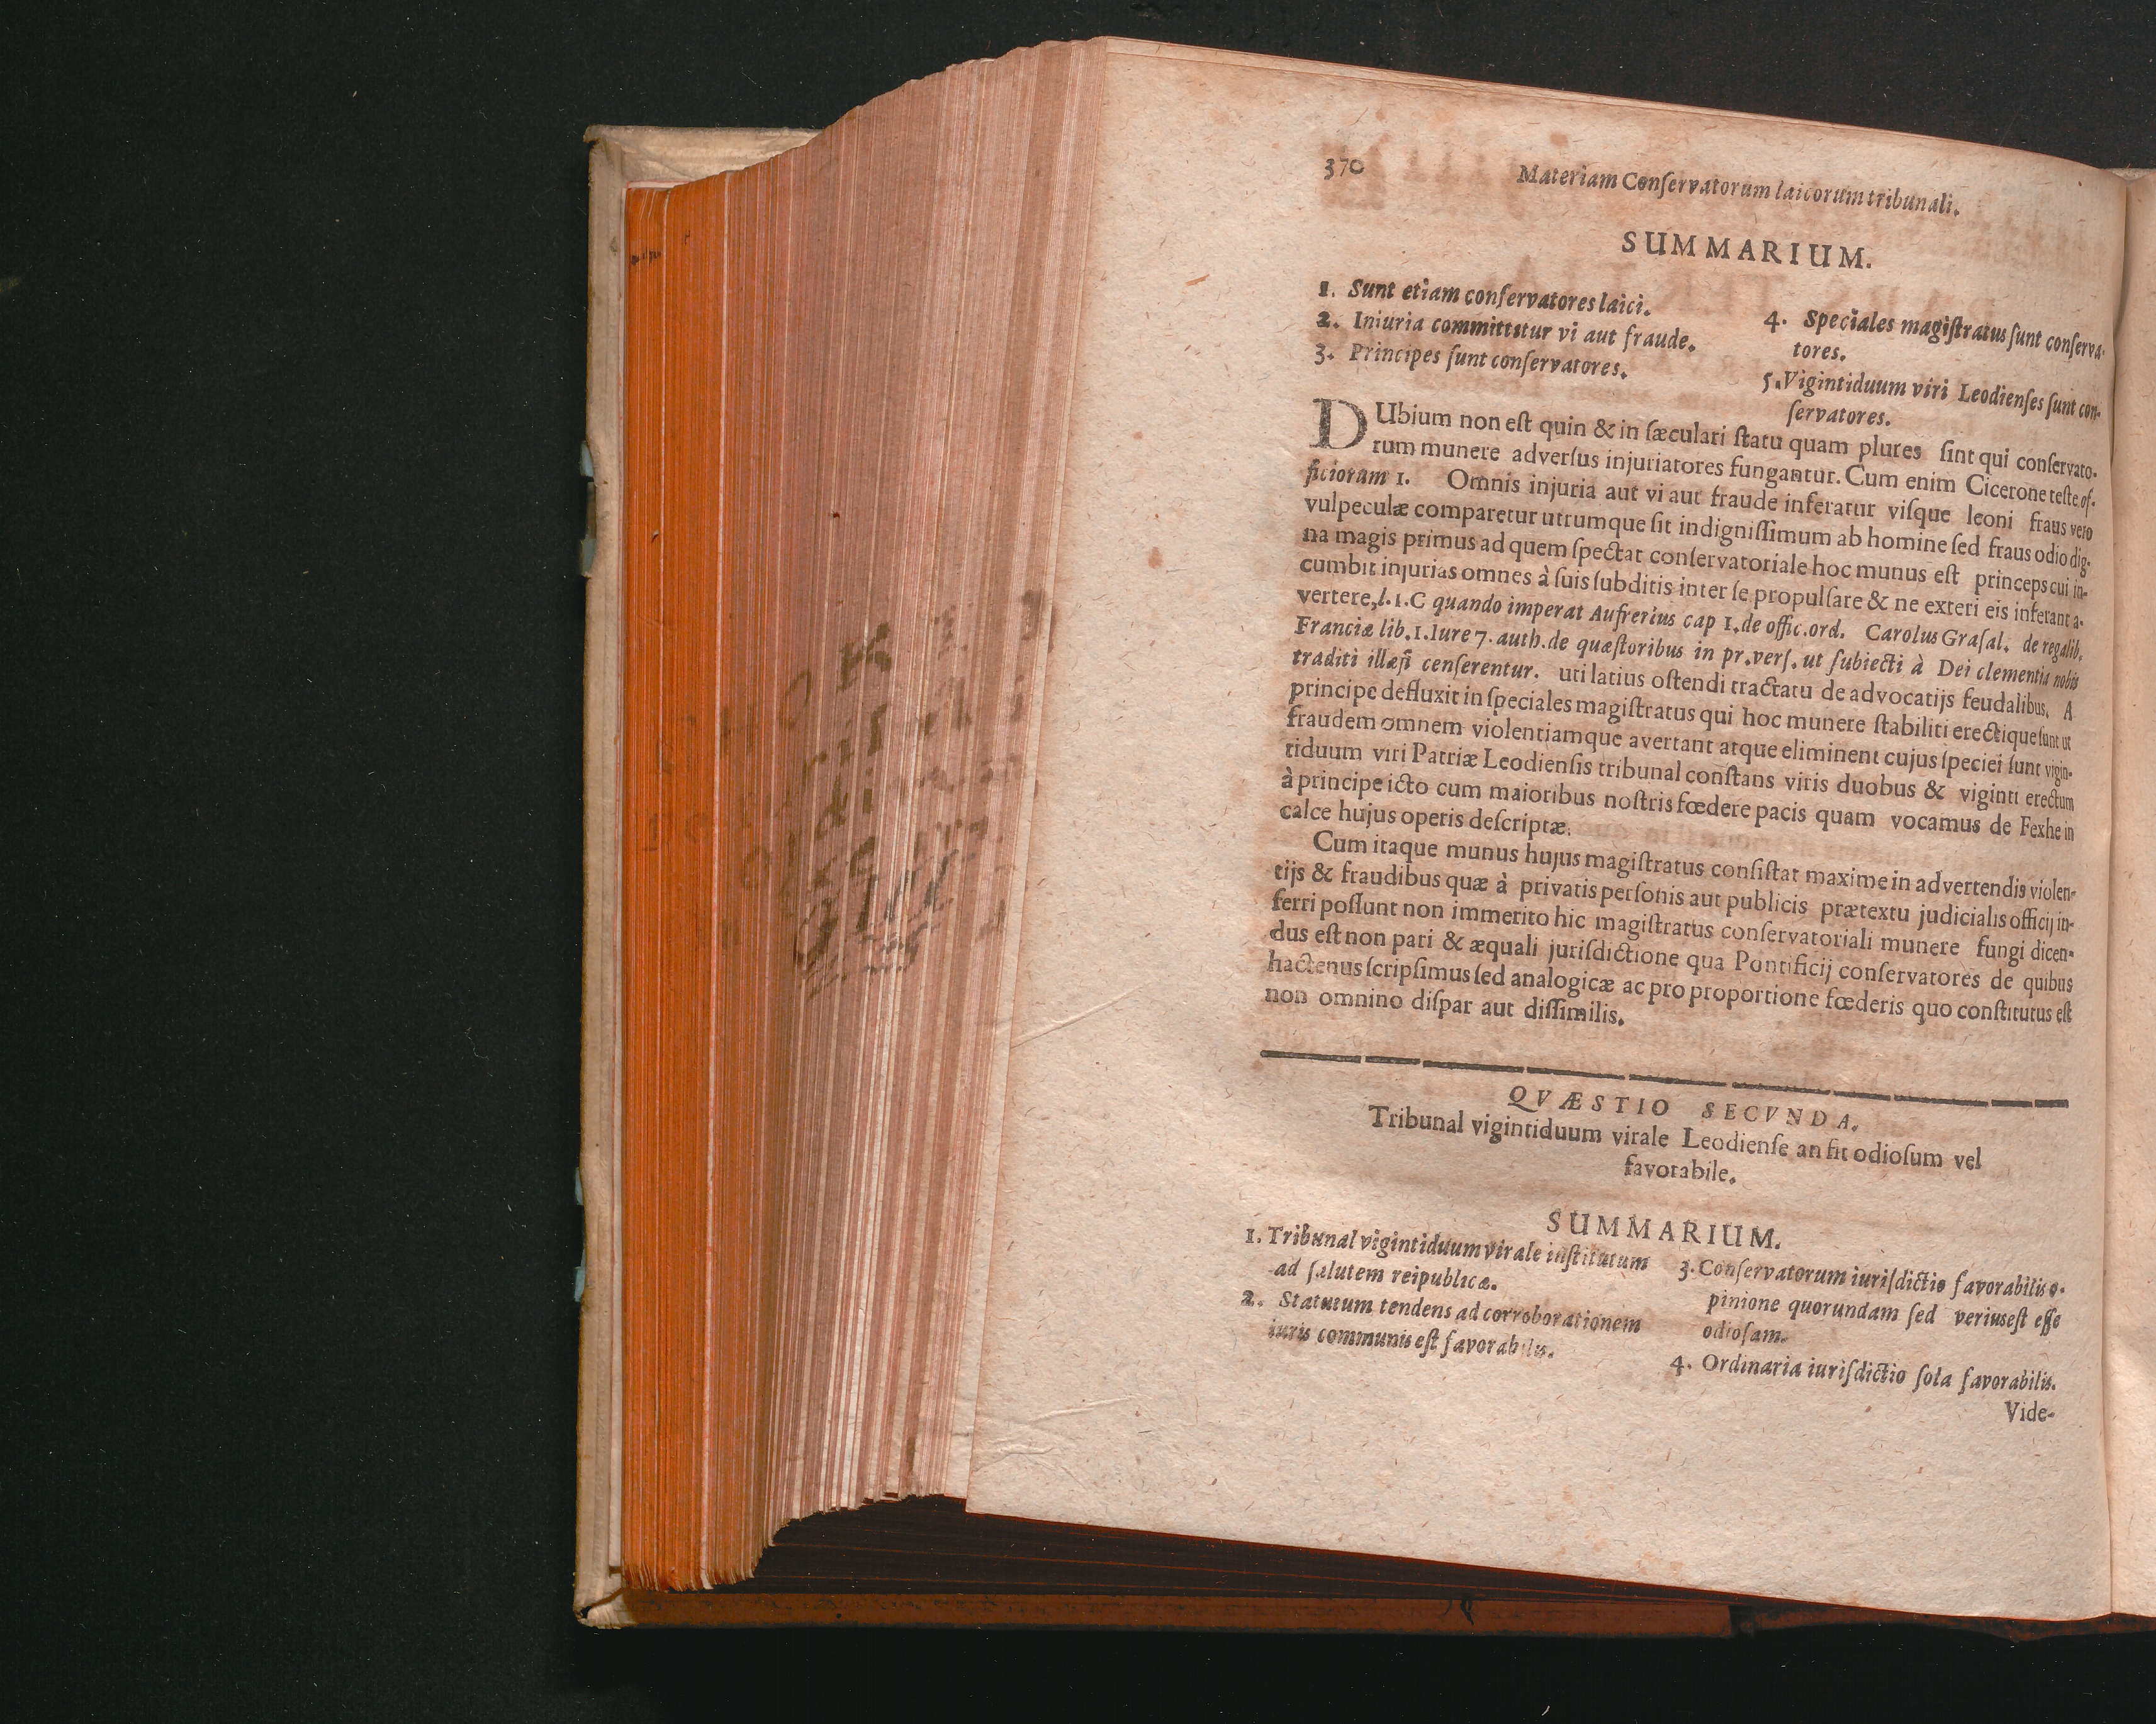 370
Materiam Conſervatorum laicorum tribunali.
SUMMARIUM.
1. Sunt etiam conſervatores laici.
2. Iniuria committitur vi aut fraude.
3. Principes ſunt conſervatores.
4. Speciales magiſtratus ſunt conſerva-
tores.
5. Vigintiduum viri Leodienſes ſunt con-
ſervatores.
DUbium non eſt quin & in ſæculari ſtatu quam plures ſint qui conſervato-
rum munere adverſus injuriatores fungantur. Cum enim Cicerone teſte of-
ficiorum 1. Omnis injuria aut vi aut fraude inferatur viſque leoni fraus vero
vulpeculæ comparetur utrumque ſit indigniſſimum ab homine ſed fraus odio dig-
na magis primus ad quem ſpectat conſervatoriale hoc munus eſt princeps cui in-
cumbit injurias omnes à ſuis ſubditis inter ſe propulſare & ne exteri eis inferant a-
vertere, l. 1. C quando imperat Aufrerius cap 1. de offic. ord. Carolus Graſal. de regalib.
Franciæ lib. 1. Iure 7. auth. de quæſtoribus in pr. verſ. ut ſubiecti à Dei clementia nobis
traditi illæſi cenſerentur. uti latius oſtendi tractatu de advocatijs feudalibus. A
principe defluxit in ſpeciales magiſtratus qui hoc munere ſtabiliti erectique ſunt ut
fraudem omnem violentiamque avertant atque eliminent cujus ſpeciei ſunt vigin-
tiduum viri Patriæ Leodienſis tribunal conſtans viris duobus & viginti erectum
à principe icto cum maioribus noſtris fœdere pacis quam vocamus de Fexhe in
calce hujus operis deſcriptæ.
Cum itaque munus hujus magiſtratus conſiſtat maxime in advertendis violen-
tijs & fraudibus quæ à privatis perſonis aut publicis prætextu judicialis officij in-
ferri poſſunt non immerito hic magiſtratus conſervatoriali munere fungi dicen-
dus eſt non pari & æquali juriſdictione qua Pontificij conſervatores de quibus
hactenus ſcripſimus ſed analogicæ ac pro proportione fœderis quo conſtitutus eſt
non omnino diſpar aut diſſimilis.
QVÆSTIO SECVNDA.
Tribunal vigintiduum virale Leodienſe an ſit odioſum vel
favorabile.
SUMMARIUM.
1. Tribunal vigintiduum virale inſtitutum
ad ſalutem reipublicæ.
2. Statutum tendens ad corroborationem
iuris communis eſt favorabilis.
3. Conſervatorum iuriſdictio favorabilis o-
pinione quorundam ſed verius eſt eſſe
odioſam.
4. Ordinaria iuriſdictio ſola favorabilis.
Vide-